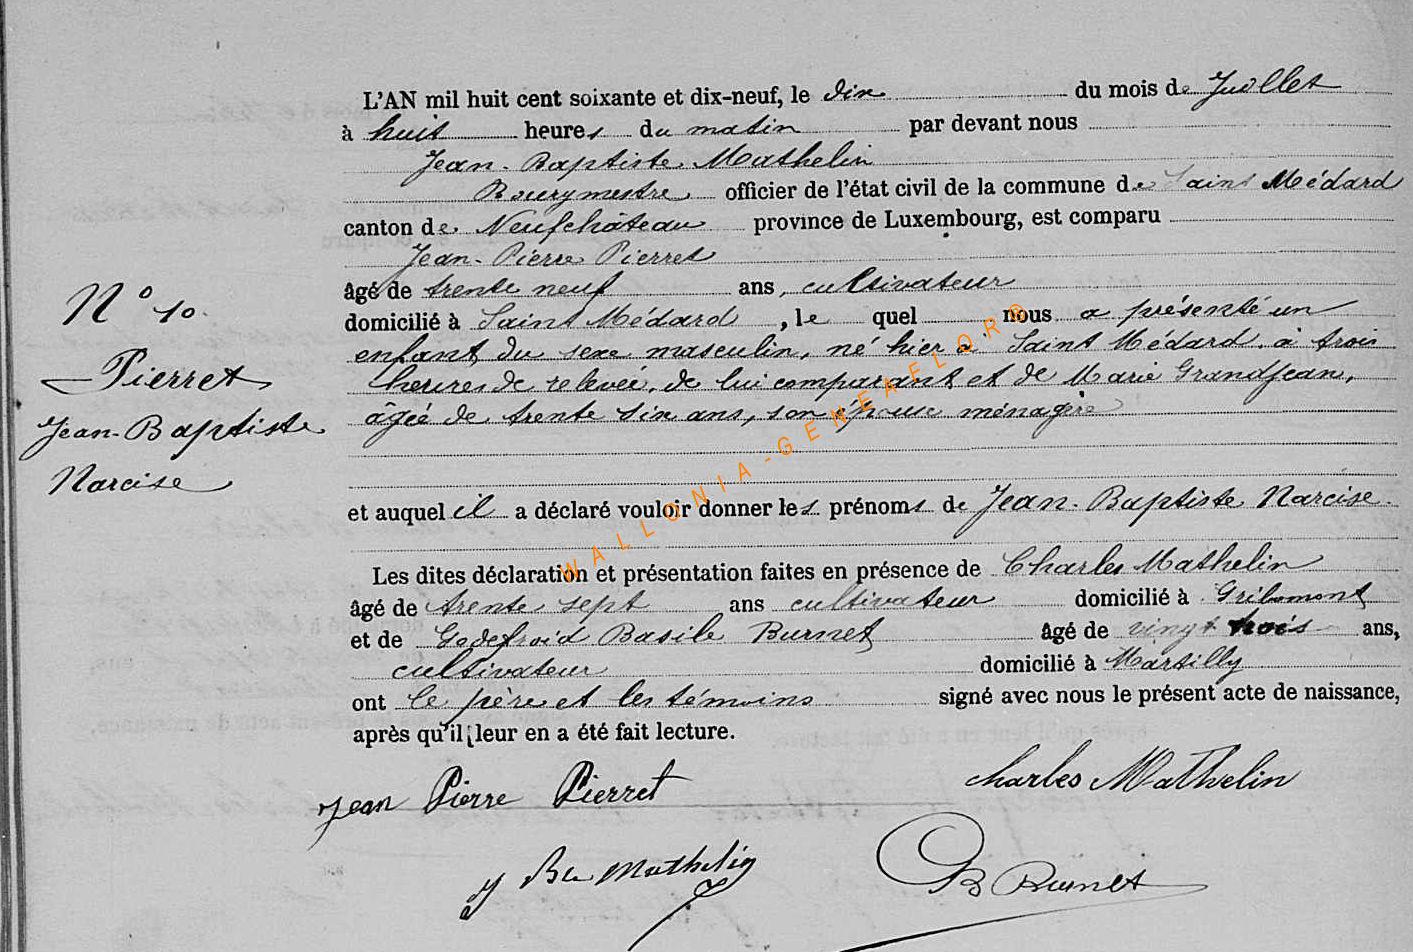 L'AN mil huit cent soixante et dix-neuf, le dix du mois de Juillet
à huit heures du matin par devant nous
Jean-Baptiste Mathelin
Bourgmestre officier de l'état civil de la commune de Saint Médard
canton de Neufchâteau province de Luxembourg, est comparu
Jean-Pierre Pierret
âgé de trente neuf ans, cultivateur
domicilié à Saint Médard, le quel nous a présenté un
enfant du sexe masculin, né hier à Saint Médard, à trois
heures de relevée, de lui comparant et de Marie Grandjean,
âgée de trente six ans, son épouse ménagère
et auquel il a déclaré vouloir donner les prénoms de Jean-Baptiste Narcise.
Les dites déclaration et présentation faites en présence de Charles Mathelin
âgé de trente sept ans cultivateur domicilié à Gribomont
et de Godefroid Basile Burnet âgé de vingt trois ans,
cultivateur domicilié à Martilly
ont le père et les témoins signé avec nous le présent acte de naissance,
après qu'il leur en a été fait lecture.
N° 10.
Pierret
Jean-Baptiste
Narcise
Jean Pierre Pierret
Charles Mathelin
J Bte Mathelin
GB Burnet
WALLONIA-GENEAFLOR®